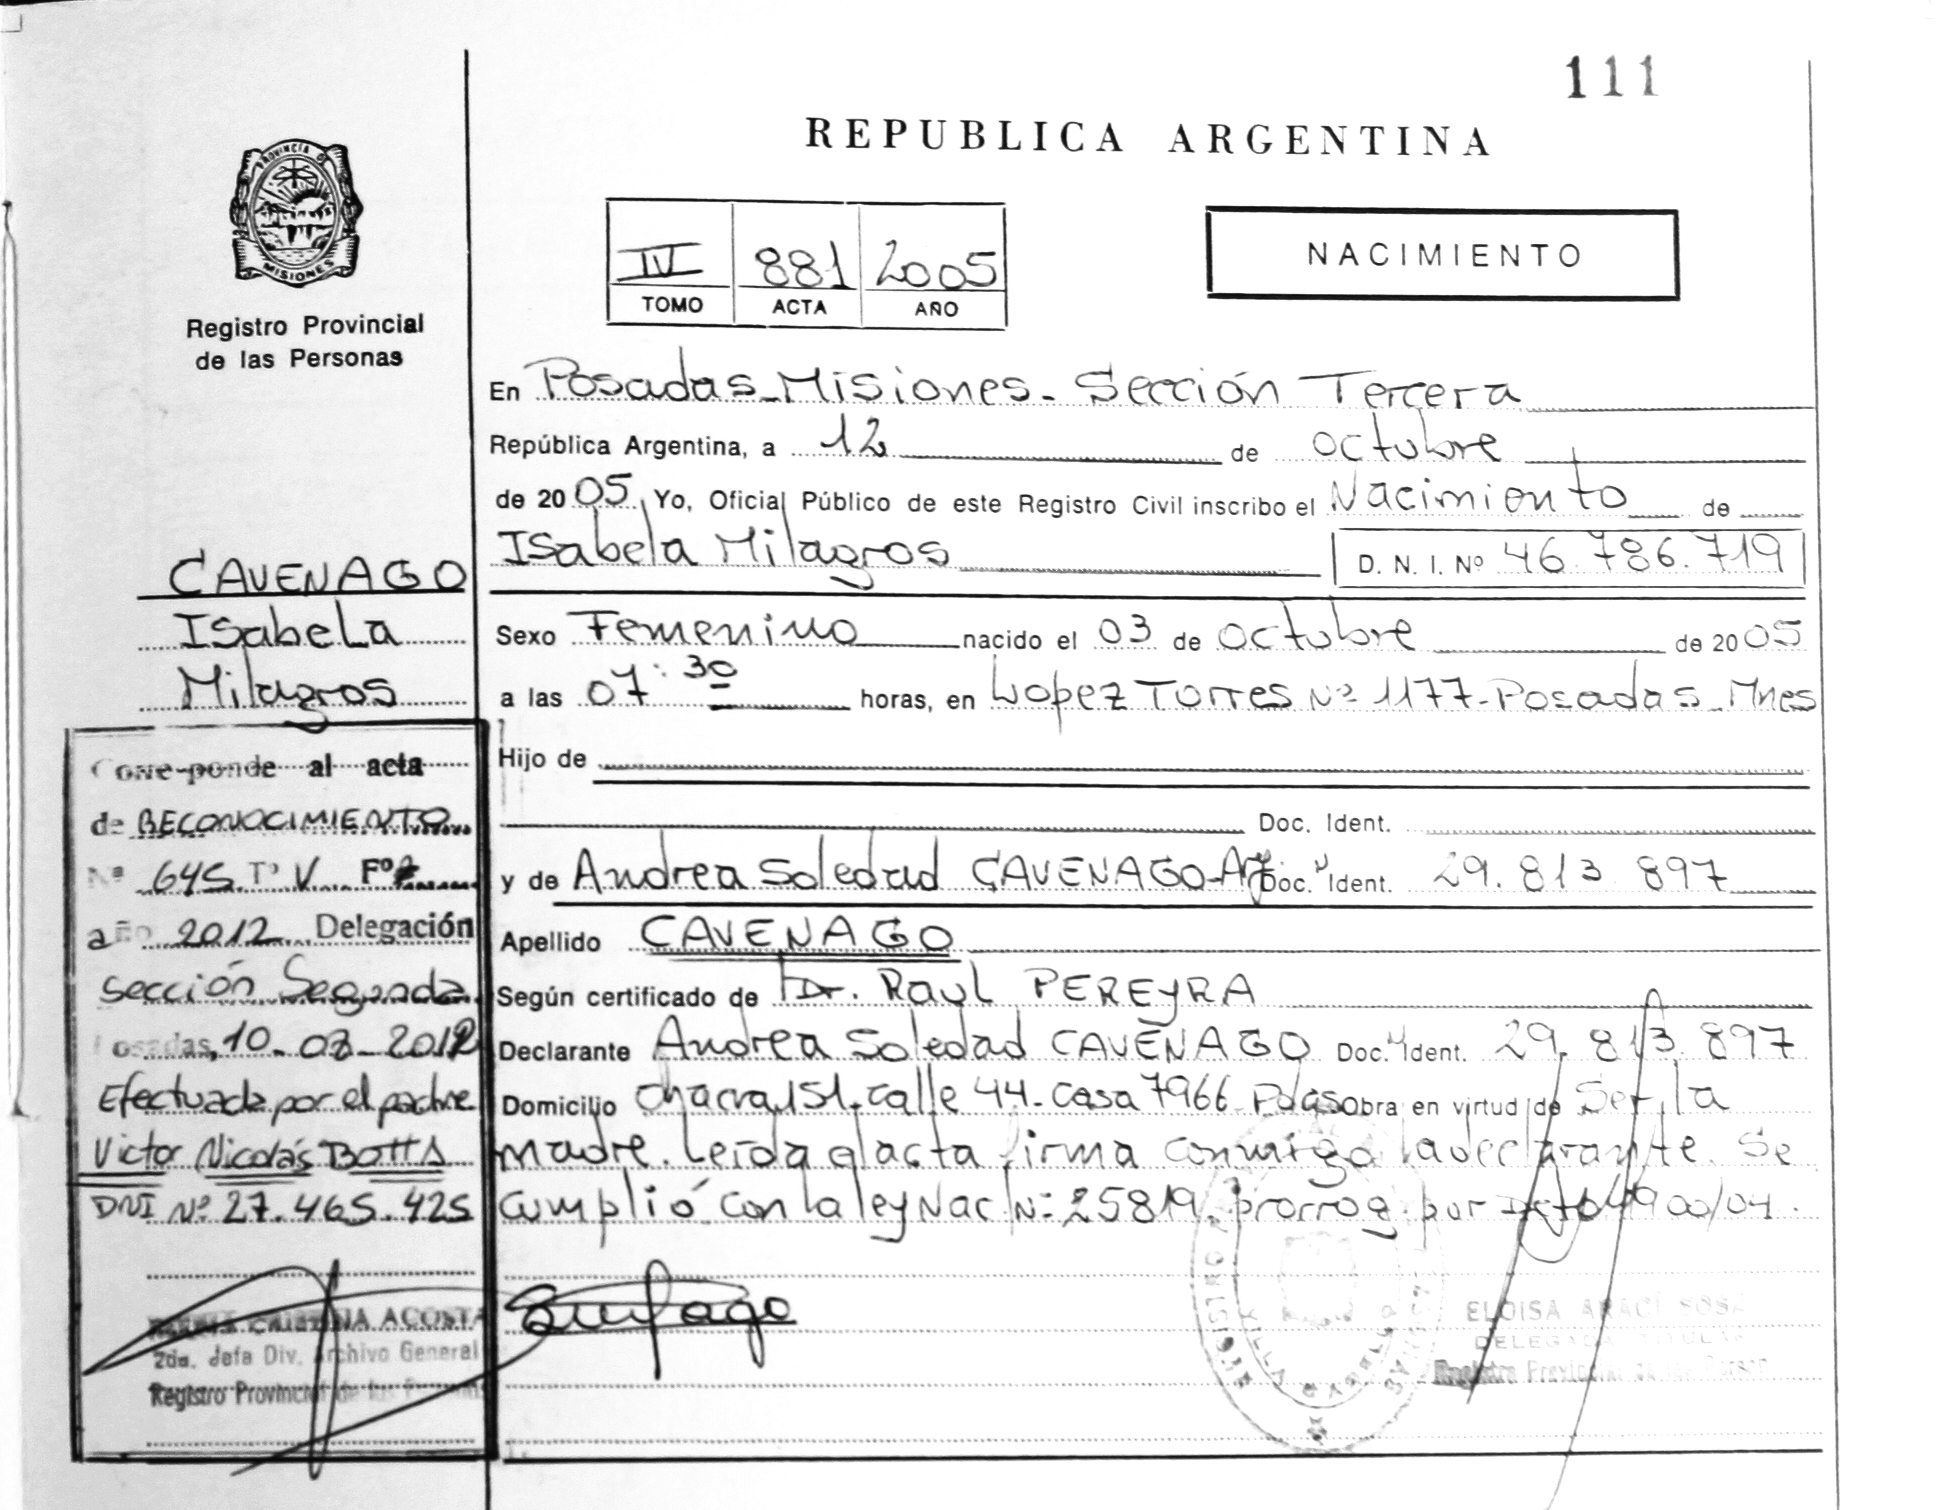 111
REPUBLICA ARGENTINA
PROVINCIA DE
MISIONES
Registro Provincial
de las Personas
IV 881 2005
TOMO ACTA AÑO
NACIMIENTO
En Posadas-Misiones-Sección Tercera
República Argentina, a 12 de octubre
de 2005, Yo, Oficial Público de este Registro Civil inscribo el Nacimiento de
Isabela Milagros D. N. I. Nº 46.786.719
CAVENAGO
Isabela
Milagros
Sexo Femenino nacido el 03 de octubre de 2005
a las 07:30 horas, en Lopez Torres Nº 1177-Posadas-Mnes
Hijo de
Doc. Ident.
y de Andrea Soledad CAVENAGO-Arg Doc. Ident. 29.813.897
Apellido CAVENAGO
Según certificado de Dr. Raul PEREYRA
Declarante Andrea Soledad CAVENAGO Doc. Ident. 29.813.897
Domicilio Chacra 151. calle 44-Casa 7966 Pdas Obra en virtud de Ser la
madre. Leida el acta firma conmigo la declarante. Se
cumplió con la ley Nac Nº 25819. prorrog. por Dcto 1900/04.
Corresponde al acta
de RECONOCIMIENTO
Nº 645 Tº V Fº
año 2012 Delegación
Sección Segunda
Posadas, 10-08-2012
Efectuada por el padre
Victor Nicolás BOTTA
DNI Nº 27.465.425
CRISTINA ACOSTA
2da. Jefa Div. Archivo General
Registro Provincial de las Personas
ELOISA ARACI SOSA
DELEGADA TITULAR
Registro Provincial
REGISTRO
VILLA CABELLO
MISIONES